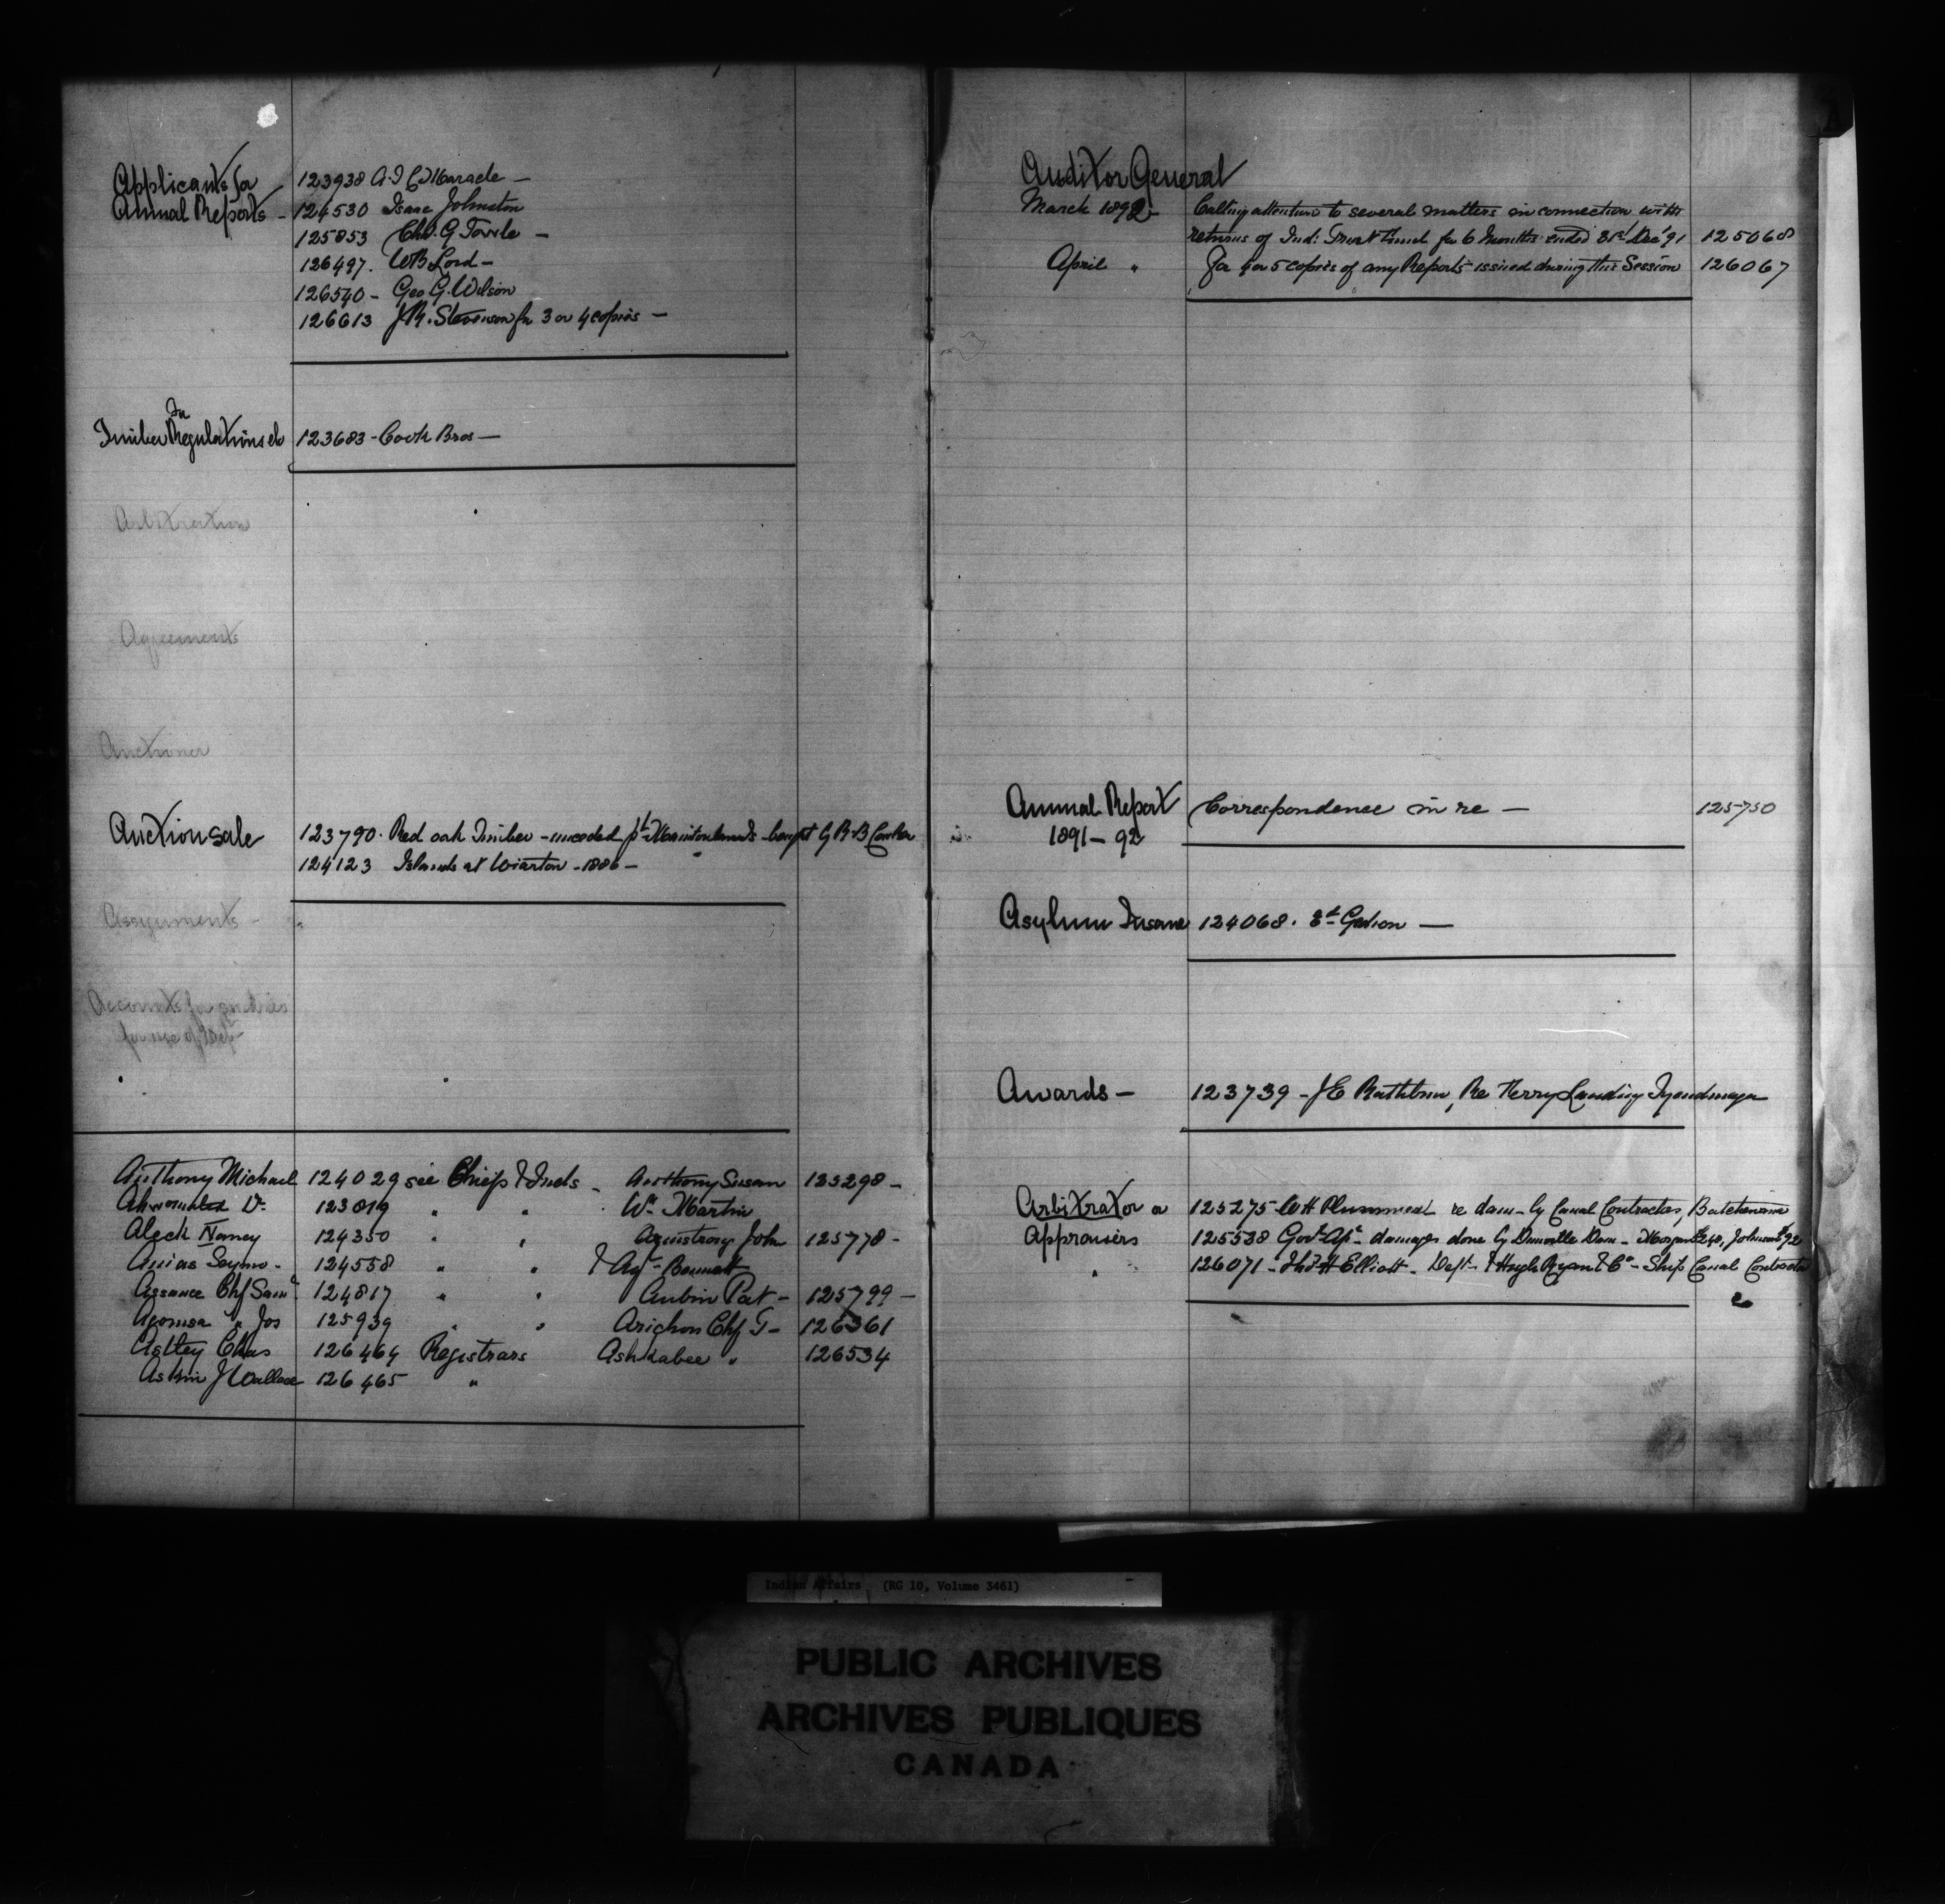 Applicants for
Annual Reports -
123938 A. J. C. Maracle -
124530 Isaac Johnston
125853 Chs. G. Towle -
126497. WB Lord -
126540 - Geo G. Wilson
126613 J.R. Stevenson for 3 or 4 copies -
For
Timber Regulations &c
123683 - Cook Bros -
Arbitration
Agreements
Auctioneer
Auction sale
123790. Red oak Timber - unceded pt Manitou lands - bought by R.B.
124123 Islands at Wiarton - 1886 -
Assignments -
Accounts for
for use of Dept
Anthony Michael 124029 see Chiefs & Inds - Anthony Susan 123298 -
123819 " " Wm Martin
Aleck Nancy 124350 " " Armstrong John 125778 -
124558 " " & Agt Bennett
Assance Chf Saml 124817 " " Aubin Pat - 125799 -
" Jos 125939 " " Chf T - 126361
Astley Chas 126464 Registrars Ashkabee " 126534
Askin J Wallace 126465 "
Auditor General
March 1892 - Calling attention to several matters in connection with
returns of Ind: Trust Fund for 6 Months ended 31st Dec '91 125068
April " For 4 or 5 copies of any Reports issued during this Session 126067
Annual Report Correspondence in re - 125750
1891 - 92
Asylum Insane 124068. -
Awards - 123739 - J E Rathbun, Re Ferry Landing Tyendinaga
Arbitrator or 125275 - WH Plummer re dam - by Canal Contractors, Batchewana
Appraisers 125538 Govt Apr - damages done by Dunnville Dam -
" 126071 - Thos H Elliott - Dept & Hugh Ryan & Co - Ship Canal Contractors
Indian Affairs (RG 10, Volume 3461)
PUBLIC ARCHIVES
ARCHIVES PUBLIQUES
CANADA